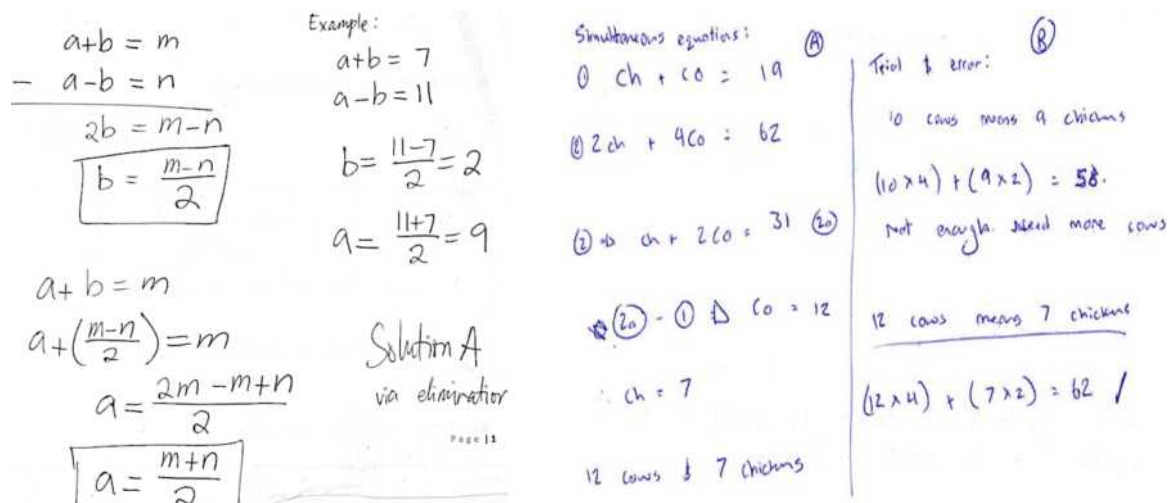 a+b = m
− a−b = n
2b = m−n
b = m−n/2
a+b = m
a+(m−n/2) = m
a = 2m−m+n/2
a = m+n/2
Example:
a+b = 7
a−b = 11
b = 11−7/2 = 2
a = 11+7/2 = 9
Solution A
via elimination
Page | 1
Simultaneous equations: (A)
① ch + co = 19
② 2ch + 4co = 62
② ⇒ ch + 2co = 31 (2a)
(2a) − ① ⇒ co = 12
∴ ch = 7
12 cows & 7 chickens
(B)
Trial & error:
10 cows means 9 chickens
(10×4) + (9×2) = 58.
Not enough. Need more cows
12 cows means 7 chickens
(12×4) + (7×2) = 62 /